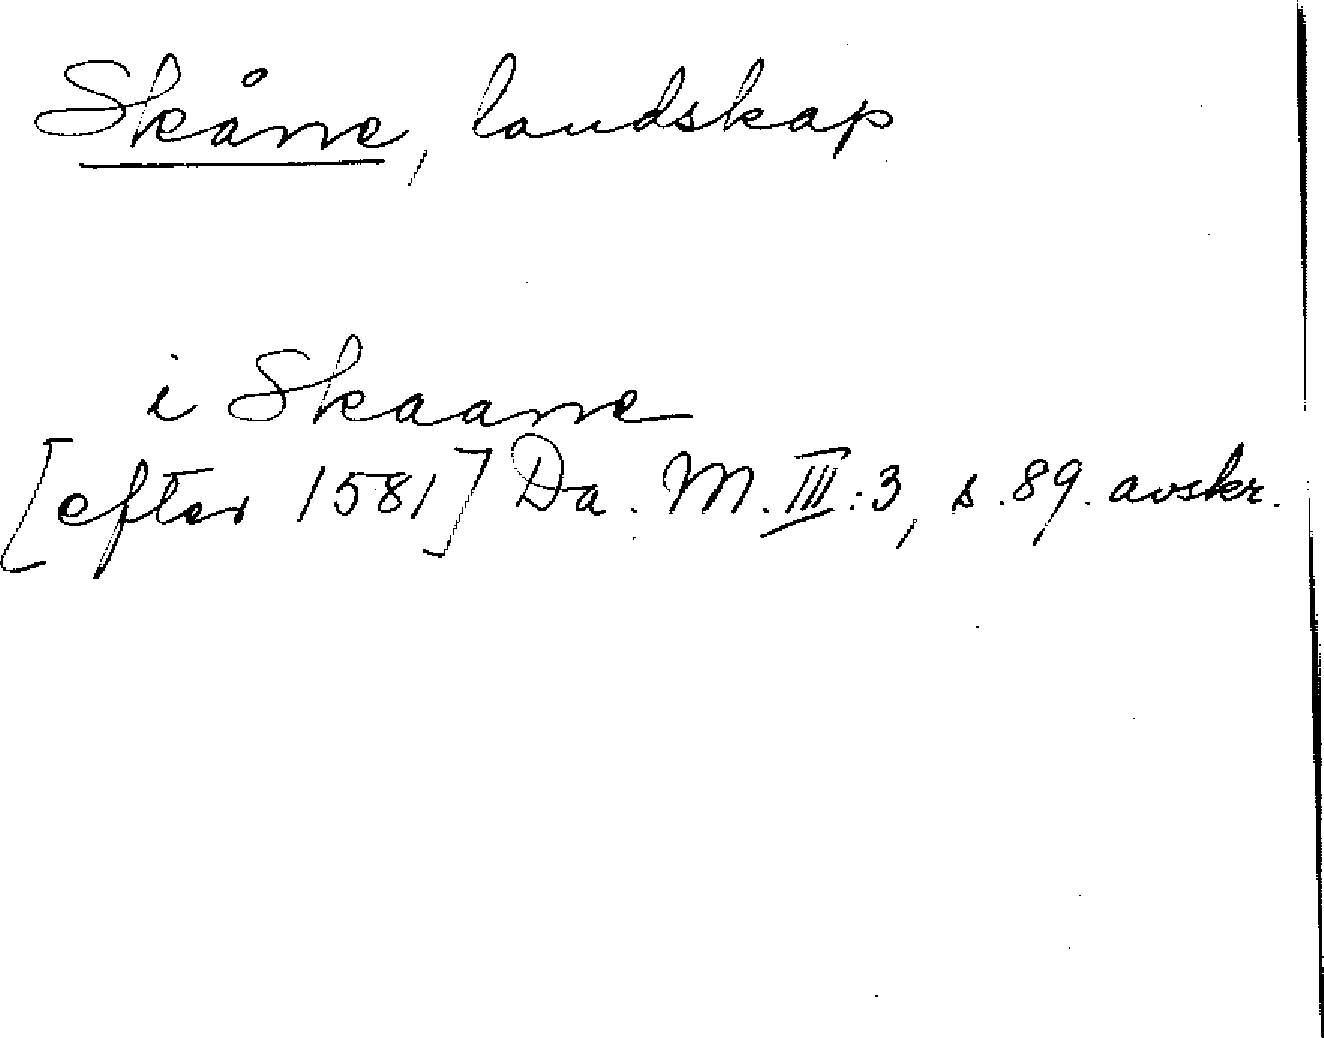 Skåne, landskap
i Skaane
[efter 1581] Da. M. III:3, s. 89. avskr.